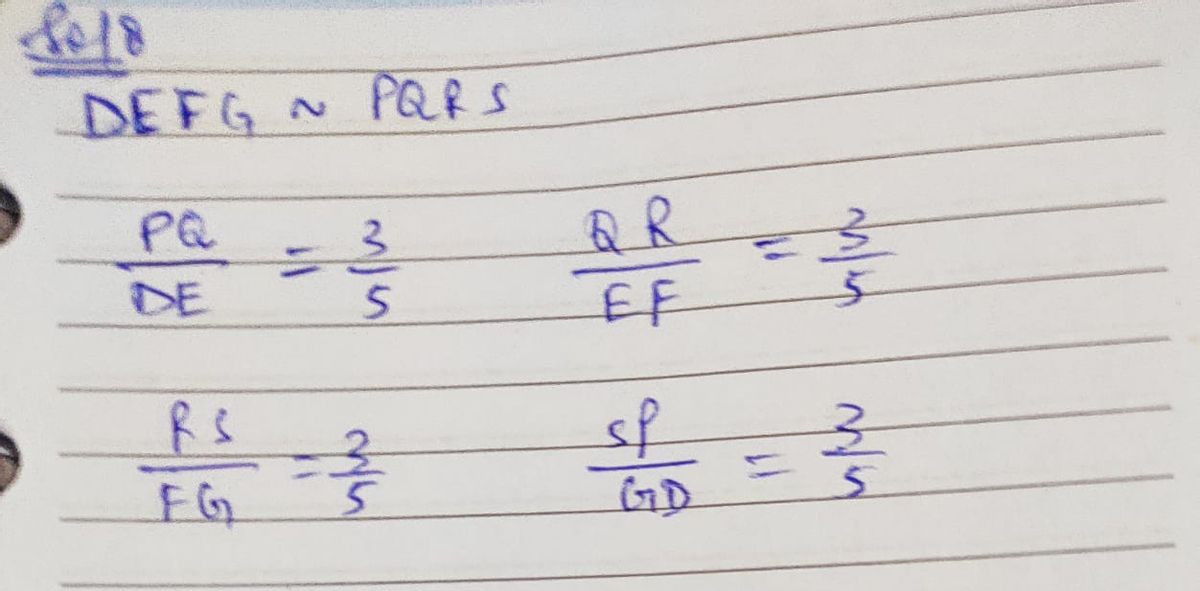 Sol8
DEFG ~ PQRS
PQ/DE = 3/5 QR/EF = 3/5
RS/FG = 3/5 SP/GD = 3/5